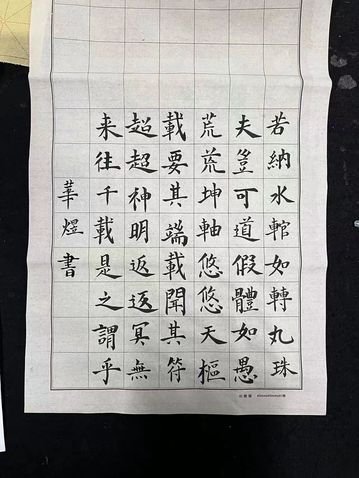 若納水輨如轉丸珠
夫豈可道假體如愚
荒荒坤軸悠悠天樞
載要其端載聞其符
超超神明返返冥無
来往千載是之謂乎
華煜書